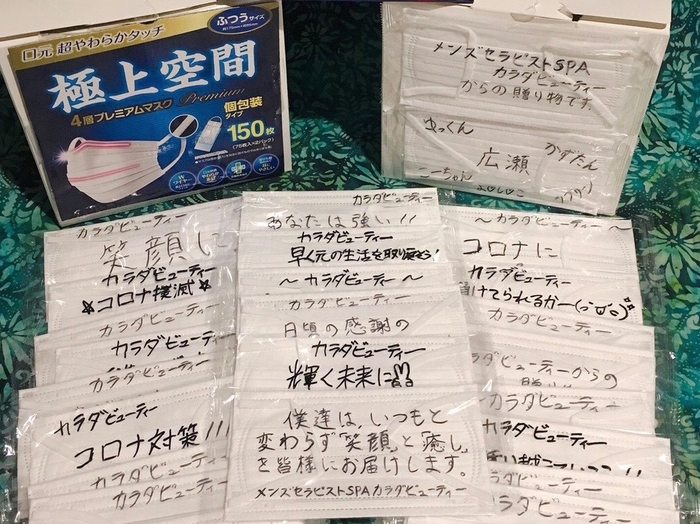 口元 超やわらかタッチ
ふつうサイズ
極上空間
4層プレミアムマスク Premium
個包装
タイプ
150枚
(75枚入×2パック)
メンズセラピストSPA
カラダビューティー
からの贈り物です。
ゆっくん
広瀬
かずたん
こーちゃん
カラダビューティー
笑顔に
カラダビューティー
☆コロナ撲滅☆
カラダビューティー
カラダビューティー
カラダビューティー
カラダビューティー
コロナ対策!!!
カラダビューティー
カラダビューティー
カラダビューティー
あなたは強い!!
カラダビューティー
早く元の生活を取り戻そう!
〜カラダビューティー〜
カラダビューティー
日頃の感謝の
カラダビューティー
輝く未来に
僕達は、いつもと
変わらず「笑顔」と「癒し」
を皆様にお届けします。
メンズセラピストSPAカラダビューティー
〜カラダビューティー〜
コロナに
カラダビューティー
負けてられるかー
カラダビューティー
カラダビューティーからの
カラダビューティー
カラダビューティー
カラダビューティー